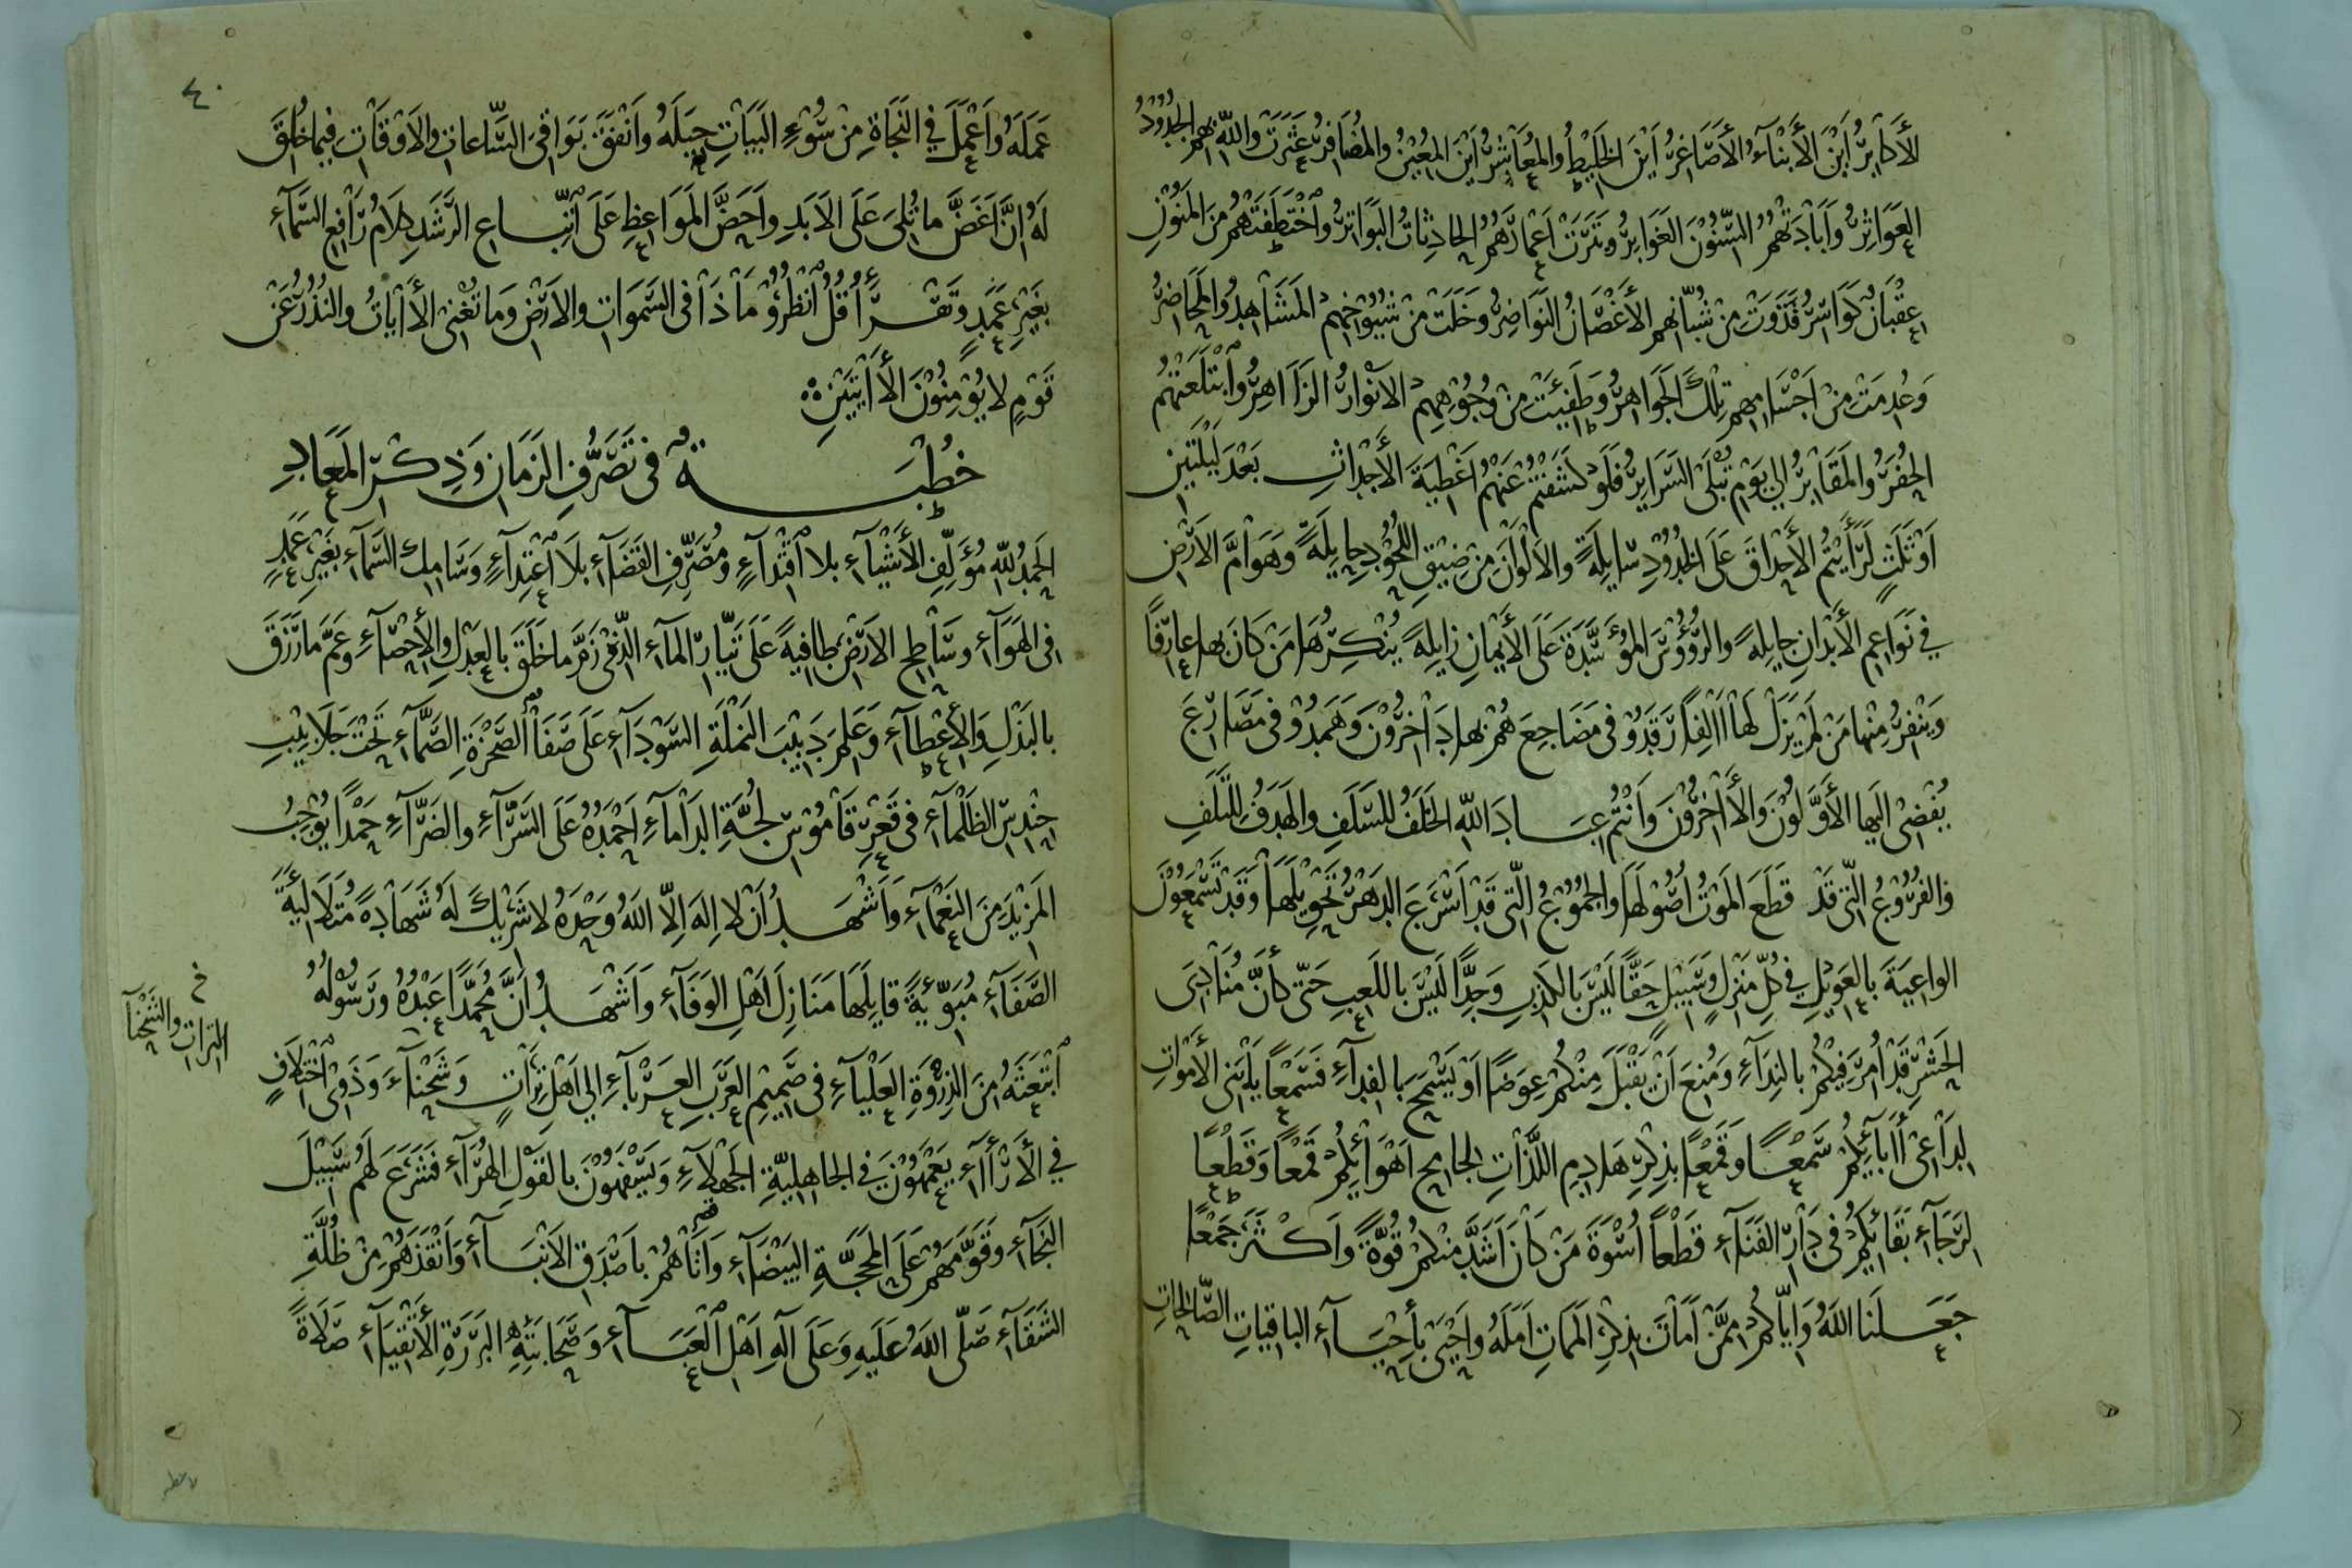 الأَكَابِرُ أَيْنَ الأَبْنَاءُ الأَصَاغِرُ أَيْنَ الخَلِيْطُ والمُعَاشِرُ أَيْنَ المُعِيْنُ والمُضَافِرُ عَثَرَتْ واللهِ بهِمِ الجُدُوْدُ
العَوَاثِرُ وَأَبَادَتْهُمُ السِّنُوْنَ الغَوَابِرُ وبَتَرَتْ أَعْمَارَهُمُ الحَادِثَاتُ البَوَاتِرُ وَاخْتَطَفَتْهُمْ مِنَ المَنُوْنِ
عِقْبَانٌ كَوَاسِرُ فَذَوَتْ مِنْ شُبَّانِهِمِ الأَغْصَانُ النَوَاضِرُ وَخَلَتْ مِنْ شُيُوْخِهِمُ المَشَاهِدُ والمَحَاضِرُ
وَعُدِمَتْ مِنْ أَجْسَامِهِمْ تِلْكَ الجَوَاهِرُ وَطَفِيَتْ مِنْ وُجُوْهِهِمُ الأَنْوَارُ الزَاهِرُ وَابْتَلَعَتْهُمُ
الحُفَرُ والمَقَابِرُ إلي يَوْمِ تُبْلَى السَرَايِرُ فَلَوْ كَشَفْتُمْ عَنْهُمْ أَغْطِيَةَ الأَجْدَاثِ بَعْدَ لَيْلَتَيْنِ
أَوْ ثَلَثٍ لَرَأَيْتُمُ الأَحْدَاقَ عَلَى الخُدُوْدِ سَايِلَةً والأَلْوَانَ مِنْ ضِيْقِ اللُّحُوْدِ حَايِلَةً وَهَوَامَّ الأَرْضِ
في نَوَاعِمِ الأَبْدَانِ جَايِلَةً والرُّؤُوْسَ المُوَسَّدَةَ عَلَى الأَيْمَانِ زَايِلَةً يُنْكِرُهَا مَنْ كَانَ بهَا عَارِفًا
وَيَنْفِرُ مِنْها مَنْ لَمْ يَزَلْ لَهَا آلِفًا رَقَدُوْ فى مَضَاجِعَ هُمْ بِهَا دَاخِرُوْنَ وَهَمَدُوْ فى مَصَارِعَ
يُفْضِى إلَيها الأَوَّلُوْنَ وَالآخِرُوْنَ وَأَنْتُمْ عِبَادَ اللهِ الخَلَفُ للسَلَفِ والهَدَفُ للتَلَفِ
والفُرُوْعُ الّتى قَدْ قَطَعَ المَوْتُ أُصُوْلَهَا والجُمُوْعُ الَّتى قَدْ أَسْرَعَ الدَهْرُ تَحْوِيْلَهَا وَقَدْ تَسْمَعُوْنَ
الواعِيَةَ بالعَوِيْلِ في كُلِّ مَنْزِلٍ وَسَبِيْلٍ حَقًّا لَيْسَ بالكَذِبِ وَجِدًّا لَيْسَ باللَعِبِ حَتّى كَأَنَّ مُنَادِىَ
الحَشْرِ قَدْ أُمِرَ فِيْكُمْ بالنِدَآءِ وَمُنِعَ أَنْ يَقْبَلَ مِنْكُمْ عِوَضًا أَوْ يَسْمَحَ بالفِدَآءِ فَسَمْعًا يَا بَنِى الأَمْوَاتِ
لِدَاعِى آبَآئِكُمْ سَمْعًا وَقَمْعًا بذِكْرِ هَادِمِ اللَّذَّاتِ لجَامِحِ أَهْوَآئِكُمْ قَمْعًا وَقَطْعًا
لِرَجَآءِ بَقَآئِكُمْ فى دَارِ الفَنَآءِ قَطْعًا أُسْوَةَ مَنْ كَانَ أَشَدَّ مِنْكُمْ قُوَّةً وَأَكْثَرَ جَمْعًا
جَعَلَنَا اللهُ وَإيَّاكُمْ مِمَّنْ أَمَاتَ بذِكْرِ المَمَاتِ أَمَلَهُ وَأَحْيَى بِأَحْيَآءِ الباقِيَاتِ الصَّالِحَاتِ
٤٠
عَمَلَهُ وَأَعْمَلَ في النَجَاةِ مِنْ سُوْءِ البَيَاتِ حِيَلَهُ وَأَنْفَقَ بَوَاقِىَ السَّاعاتِ والأَوْقَاتِ فيمَا خُلِقَ
لَهُ إنَّ أَغَضَّ ما تُلِىَ عَلَى الأَبَدِ وَأَحَضَّ المَوَاعِظِ عَلَى اتِّبَاعِ الرَشَدِ كَلَامُ رَافِعِ السَّمَآءِ
بِغَيْرِ عَمَدٍ وتَقْرَأُ قُلِ انْظُرُوْ مَاذَا فى السَّمَوَاتِ والأَرْضِ وَمَا تُغْنِى الآيَاتُ والنُذُرُ عَنْ
قَوْمٍ لا يُؤْمِنُوْنَ الآيَتَيْنِ
خُطْبَةٌ فى تَصَرُّفِ الزَمَانِ وَذِكْرِ المَعَادِ
الحَمْدُ للهِ مُؤَلِّفِ الأَشْيَآءِ بلا اقْتِدَآءٍ ومُصَرِّفِ القَضَآءِ بلَا اعْتِدَآءٍ وَسَامِكِ السَّمَآءِ بِغَيْرِ عَمَدٍ
فى الهَوَآءِ وسَاطِحِ الأَرْضِ طَافِيَةً عَلَى تَيَّارِ المآءِ الّذِى زَمَّ ما خَلَقَ بالعَدْلِ والأِحْصَآءِ وَعَمَّ ما رَزَقَ
بالبَذْلِ وَالأِعْطَآءِ وَعَلِمَ دَبِيْبَ النَمْلَةِ السَّوْدَآءِ عَلَى صَفَا الصَّخْرَةِ الصَّمَّآءِ تَحْتَ جَلَابِيْبِ
حِنْدِسِ الظَلْمَآءِ فى قَعْرِ قَامُوْسِ لُجَّةِ الدَأْمَآءِ أَحْمَدُهُ عَلَى السَرَّآءِ والضَرَّآءِ حَمْدًا يُوْجِبُ
المَزِيْدَ مِنَ النَعْمَآءِ وَأَشْهَدُ أَنْ لا إلهَ إلّا اللهُ وَحْدَهُ لا شَرِيْكَ لَهُ شَهَادَةً مُتَلَالِئَةَ
الصَّفَآءِ مُبَوِّئَةً قايِلَهَا مَنَازِلَ أَهْلِ الوَفَآءِ وَأَشْهَدُ أَنَّ مُحَمَّدًا عَبْدُهُ وَرَسُوْلُهُ
خ
التراتِ والشَحْنآ
ابْتَعَثَهُ مِنَ الذِرْوَةِ العَلْيَآءِ فى صَمِيْمِ العَرَبِ العَرْبَآءِ إلي أَهْلِ تِرَاتٍ وَشَحْنَآءَ وَذَوِى اخْتِلَافٍ
في الأَرْآءِ يَعْمَهُوْنَ في الجاهِلِيَّةِ الجَهْلَآءِ وَيَسْفَهُوْنَ بالقَوْلِ الهُرَآءِ فَشَرَعَ لَهُمْ سَبِيْلَ
النَجَآءِ وَقَوَّمَهُمْ عَلَى المَحَجَّةِ البَيْضَآءِ وَأَتَاهُمْ بأَصْدَقِ الأَنْبَآءِ وَأَنْقَذَهُمْ مِنْ ظُلَّةِ
الشَقَآءِ صَلّى اللهُ عَلَيهِ وَعَلَى آلِهِ أَهْلِ العَبَآءِ وَصَحَابَتِهِ البَرَرَةِ الأَتْقِيَآءِ صَلَاةً